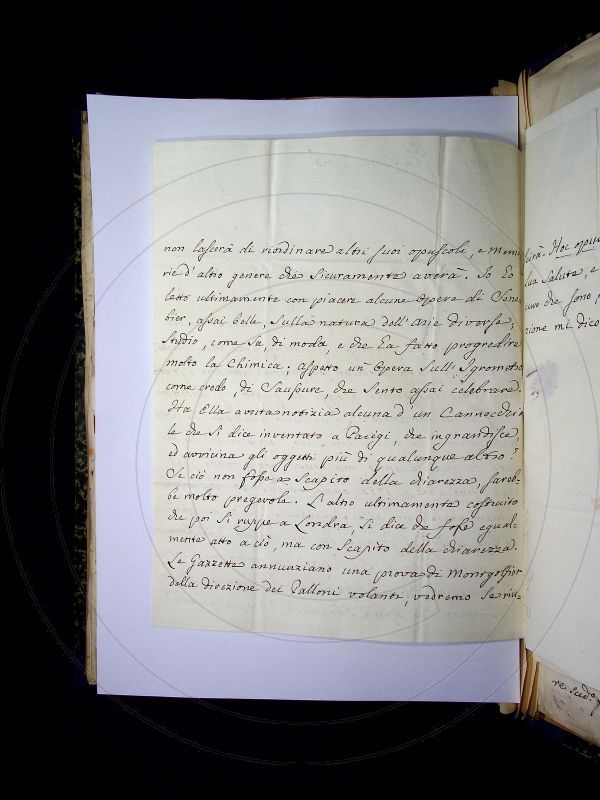 non lascerà di riordinare altri suoi opuscoli, e memo
rie d'altro genere che sicuramente averà. Io ho
letto ultimamente con piacere alcune opere di Sene
bier, assai belle, sulla natura dell'Arie diverse,
studio, come sa, di moda, e che ha fatto progredire
molto la Chimica; aspetto un'opera sull'Igrometro
come credo, di Saussure, che sento assai celebrare.
Ha Ella avuta notizia alcuna d'un Cannocchia
le che si dice inventato a Parigi, che ingrandisce,
ed avvicina gli oggetti più di qualunque altro?
Se ciò non fosse a scapito della chiarezza, sareb-
be molto pregevole. L'altro ultimamente costruito
che poi si ruppe a Londra, si dice che fosse egual-
mente atto a ciò, ma con scapito della chiarezza.
Le Gazzette annunziano una prova di Mongolfier
della direzione dei Palloni volanti, vedremo se riu-
Hoc opu
sua salute, e
che sono
zione mi dico
re. Sud.